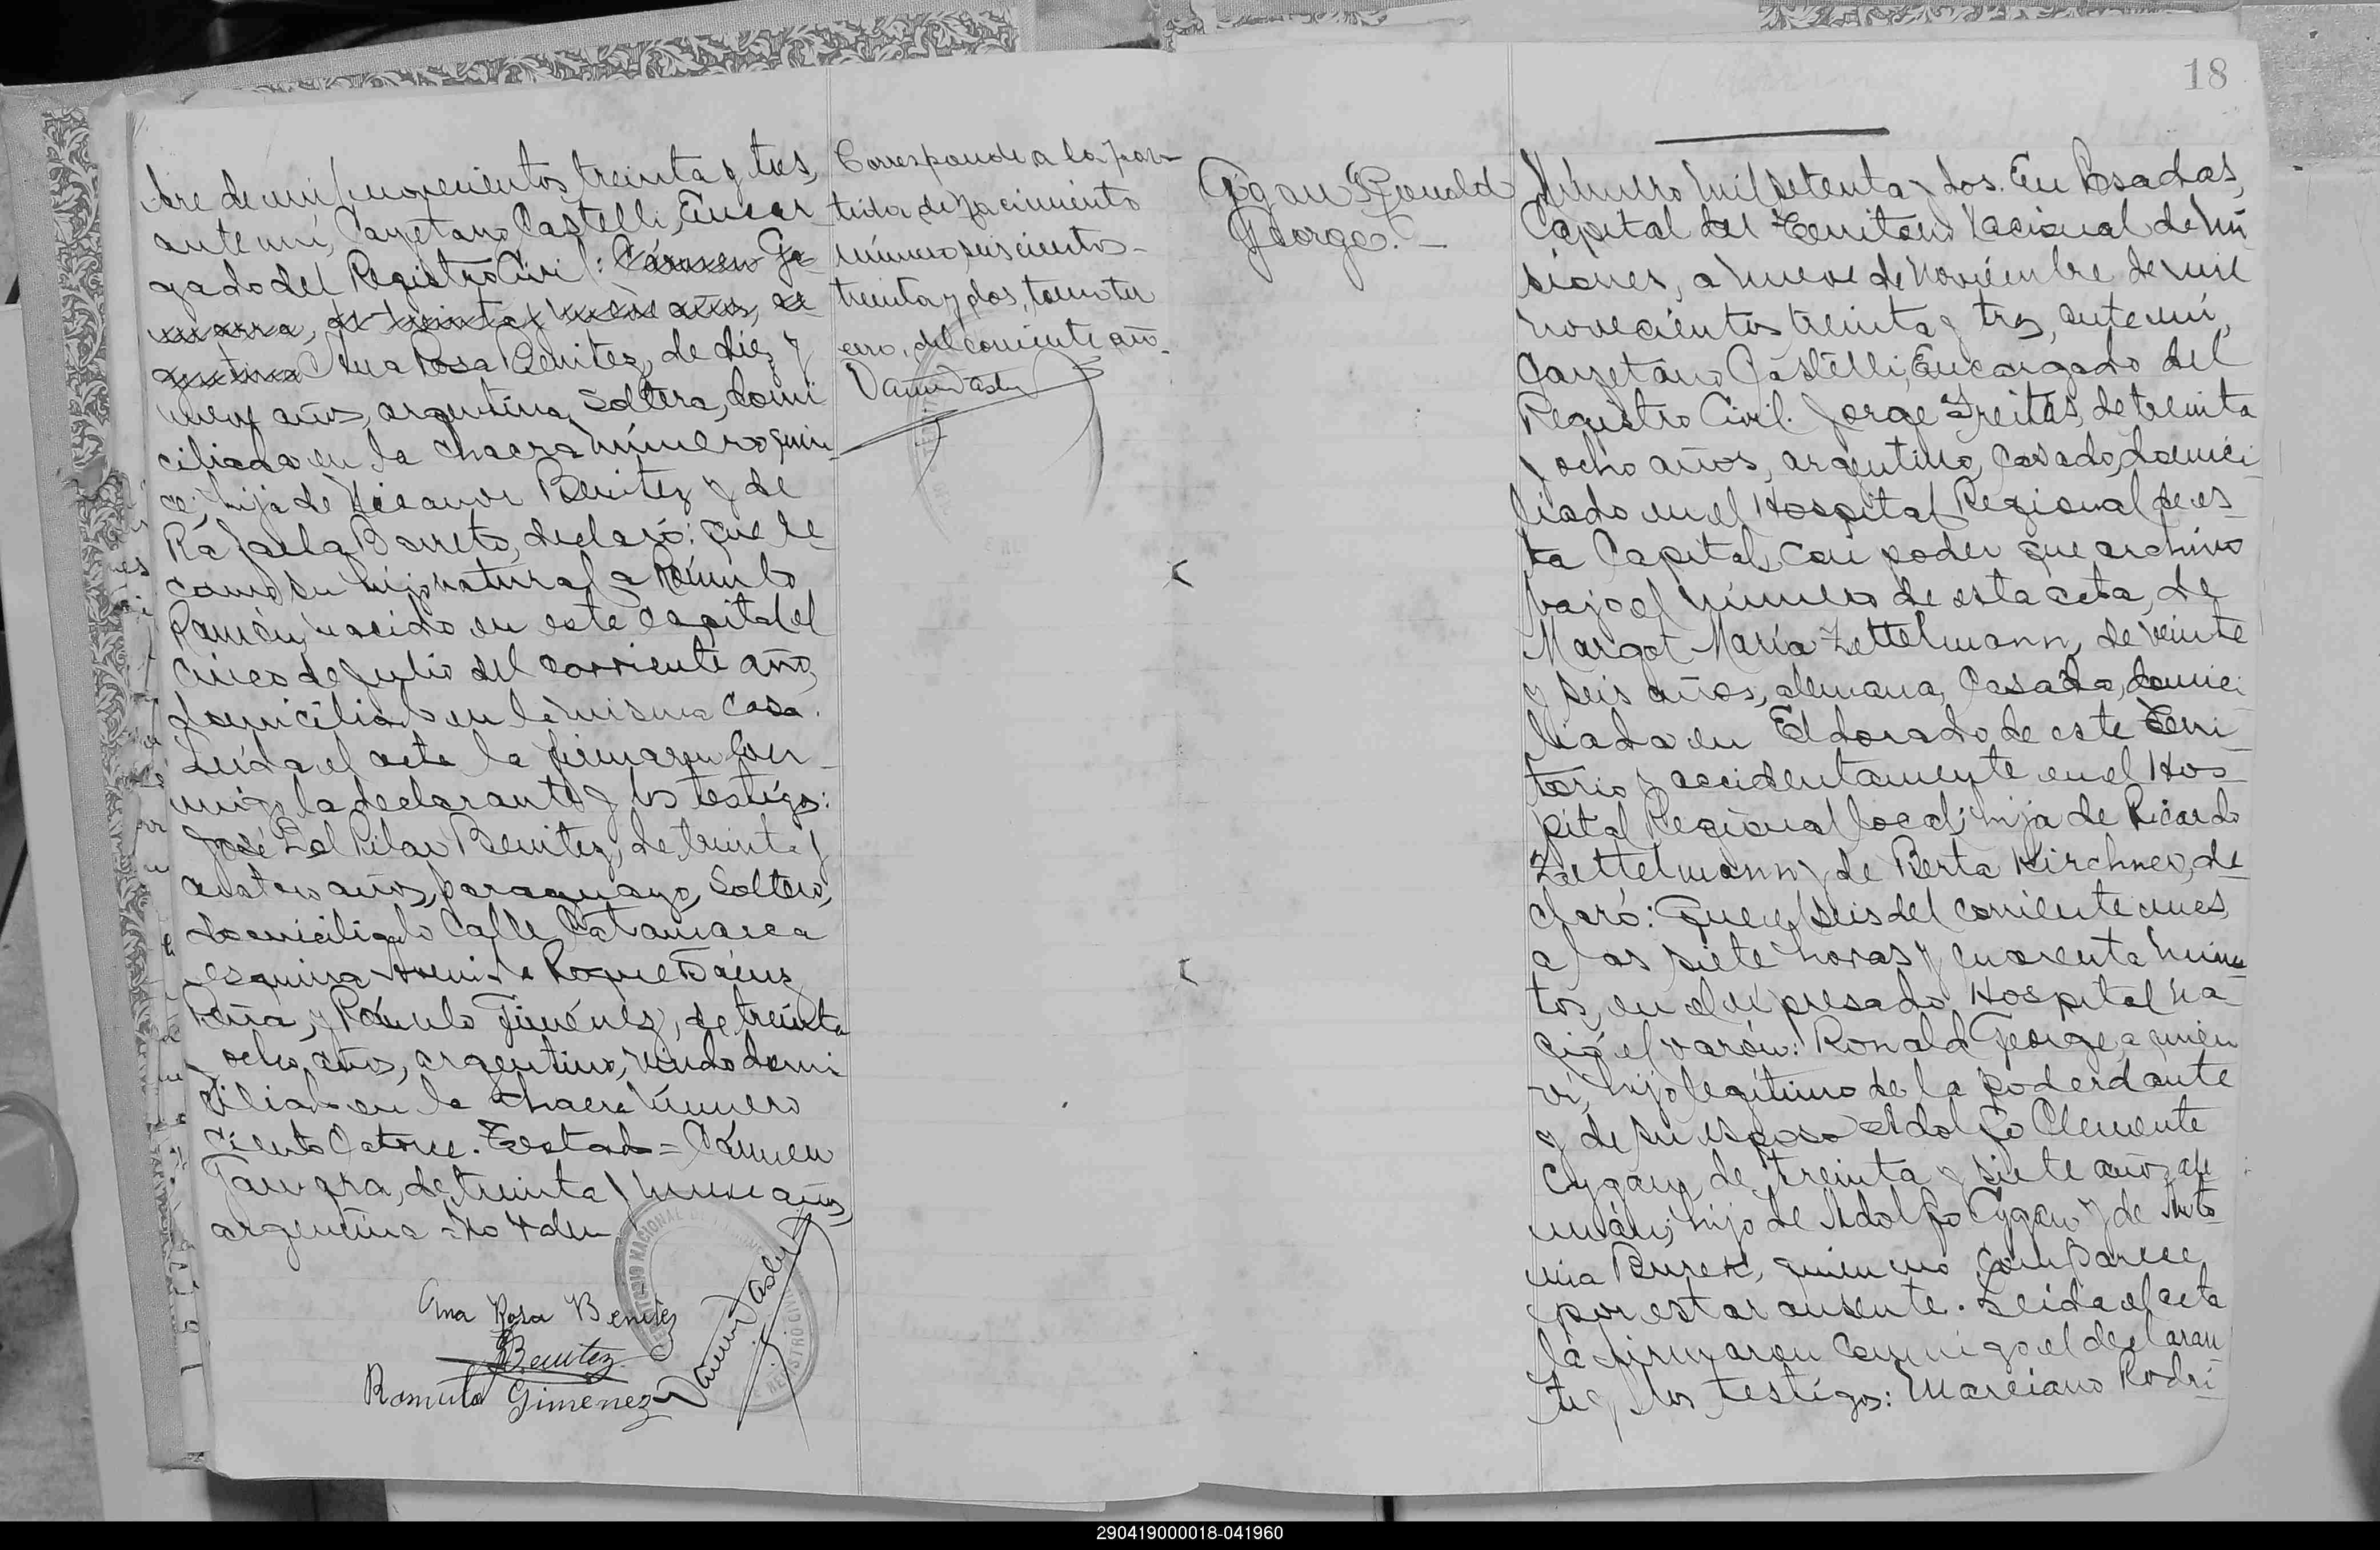 bre de mil novecientos treinta y tres,
ante mí, Cayetano Castelli, Encar
gado del Registro Civil: Cármen Ga
marra, de treinta y nueve años, ar
gentina Ana Rosa Benitez, de diez y
nueve años, argentina, Soltera, domi
ciliada en la chacra número quin
ce; hija de Nicanor Benitez y de
Rafaela Barreto, declaró: que re
como su hijo natural a Rómulo
Ramón, nacido en esta capital el
cinco de Julio del corriente año,
domiciliado en la misma casa.
Leída el acta la firmaron con
migo la declarante y los testigos:
José Del Pilar Benitez, de treinta y
cuatro años, paraguayo, Soltero,
domiciliado Calle Catamarca
esquina Avenida Roque Sáenz
Peña, y Rómulo Giménez, de treinta
y ocho años, argentino, viudo domi
ciliado en la chacra número
ciento catorce. Testado = Cármen
Gamarra, de treinta y nueve años,
argentina = No vale
Ana Rosa Benitez
Benitez
Romulo Gimenez
Corresponde a la par
tida de nacimiento
número seiscientos
treinta y dos, tomo ter
cero, del corriente año.
Cigan Ronald
George. -
18
Número mil setenta y dos. En Posadas,
Capital del Territorio Nacional de Mi
siones, a nueve de Noviembre de mil
novecientos treinta y tres, ante mí,
Cayetano Castelli, Encargado del
Registro Civil. Jorge Freitas, de treinta
y ocho años, argentino, casado, domici
liado en el Hospital Regional de es
ta Capital, con poder que archivo
bajo el número de esta acta, de
Margot María Zettelmann, de veinte
y seis años, alemana, Casada, domici
liada en Eldorado de este Terri
torio y accidentamente en el Hos
pital Regional local; hija de Ricardo
Zettelmann y de Berta Kirchner, de
claró: Que el seis del corriente mes,
a las siete horas y cuarenta minu
tos, en el expresado Hospital na
ció el varón: Ronald George, a quien
ví, hijo legítimo de la poderdante
y de su esposo Adolfo Clemente
Cygan, de treinta y siete años, ale
mán; hijo de Adolfo Cygan y de Anto
nia Burek, quien no comparece
por estar ausente. Leída el acta
la firmaron conmigo el declaran
te y los testigos: Marciano Rodri
290419000018-041960